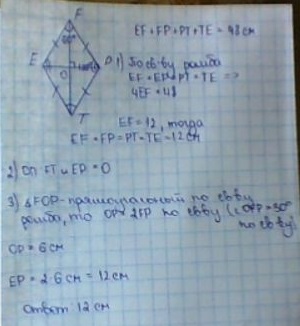 F
60°
E
O
P
T
EF + FP + PT + TE = 48 см
1) По св-ву ромба
EF = FP = PT = TE =>
4EF = 48
EF = 12, тогда
EF = FP = PT = TE = 12 см
2) FT и EP = O
3) △FOP - прямоугольный по св-ву
ромба, то OP = 2FP по св-ву (∠OFP = 30°
по св-ву)
OP = 6 см
EP = 2·6 см = 12 см
Ответ 12 см